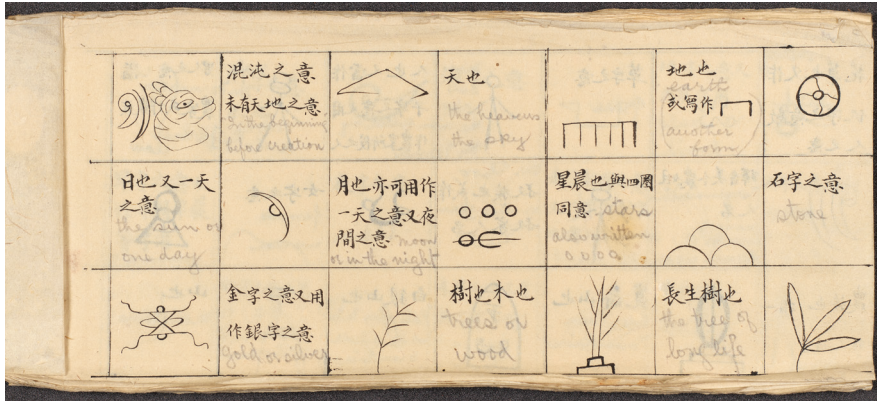 混沌之意
未有天地之意
"In the beginning"
before creation
天也
the heavens
the sky
地也
或寫作
earth
(another
form)
日也又一天
之意
the sun or
one day
月也亦可用作
一天之意又夜
間之意
moon
or in the night
星晨也與四圈
同意
stars
also written
0000
石字之意
stone
金字之意又用
作銀字之意
gold or silver
樹也木也
trees or
wood
長生樹也
the tree of
long life